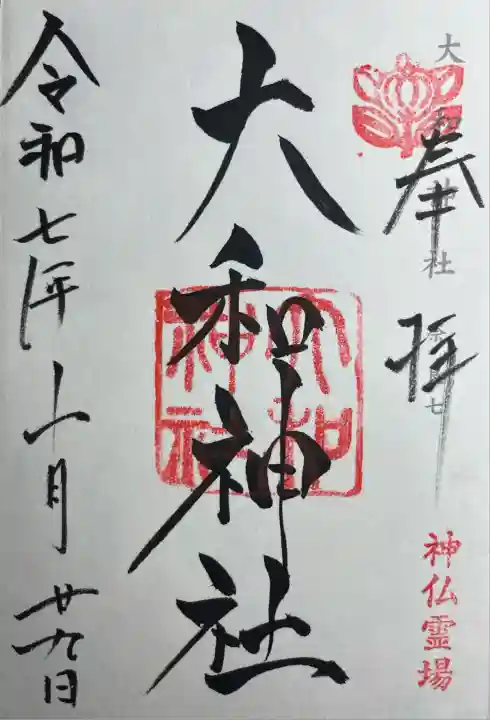 大和神社
奉拝
神仏霊場
大和神社
大和神社
令和七年十月廿九日